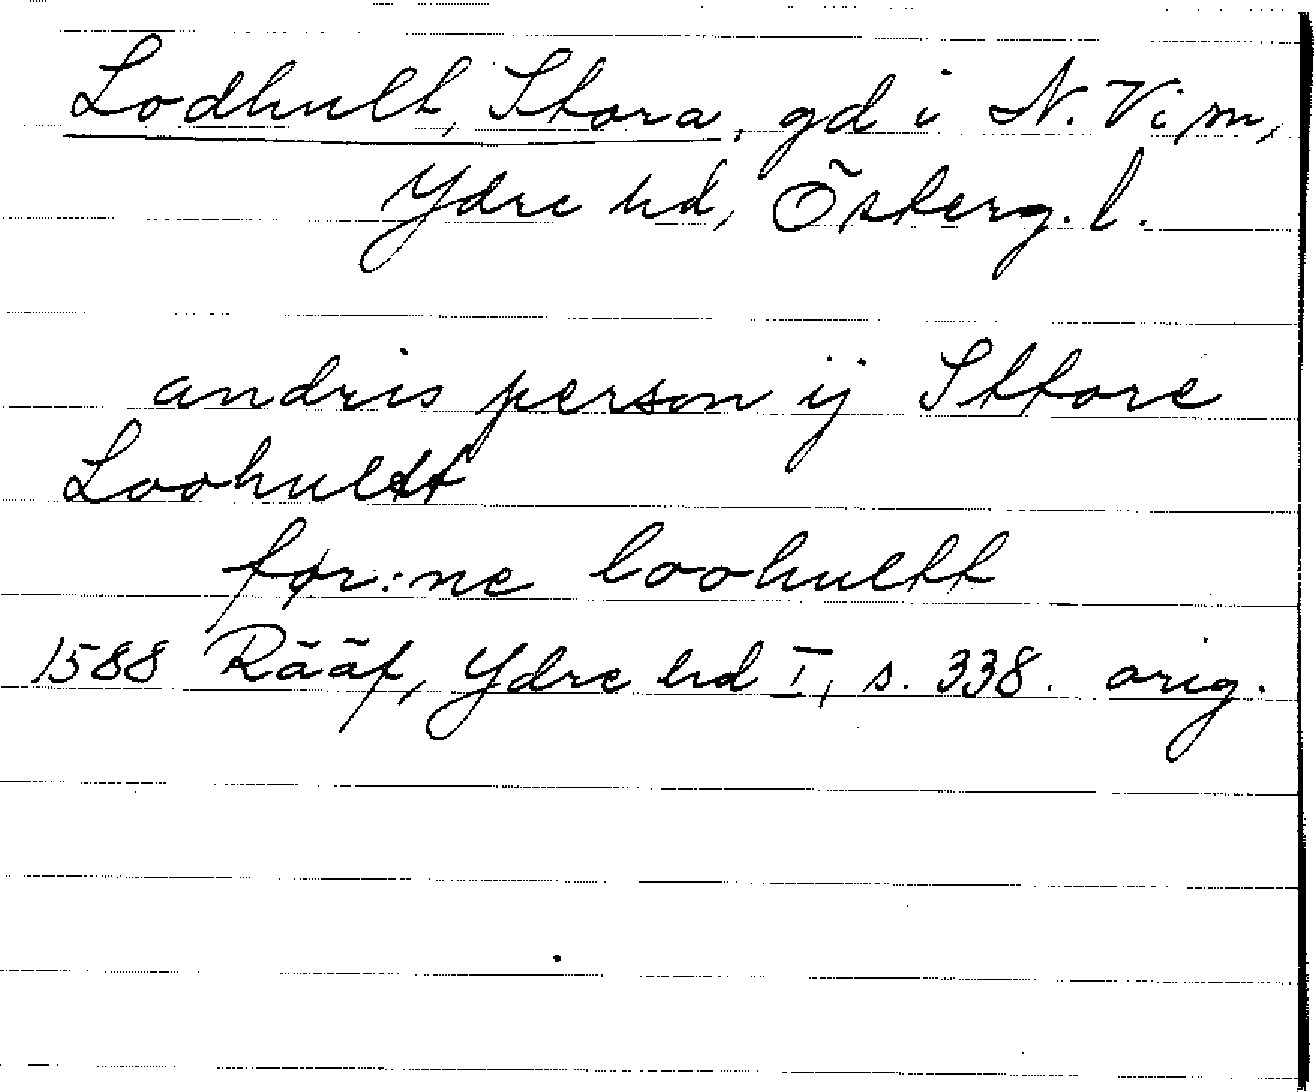 Lodhult, Stora, gd i N. Vi sn,
Ydre hd, Österg. l.
andris person ij Sttore
Loohultt
för:ne loohultt
1588 Rääf, Ydre hd I, s. 338. orig.